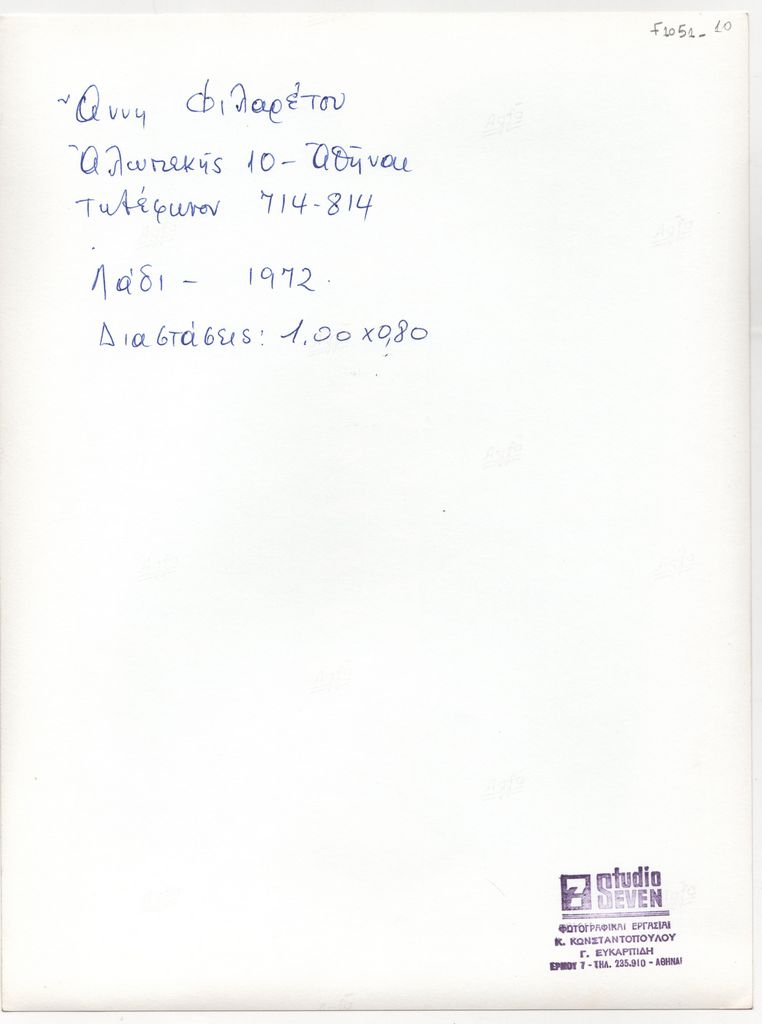 F1051-10
Ἄννη Φιλαρέτου
Ἀλωπεκῆς 10 - Ἀθῆναι
Τηλέφωνον 714-814
Λάδι - 1972.
Διαστάσεις: 1,00 x 0,80
7 studio
SEVEN
ΦΩΤΟΓΡΑΦΙΚΑΙ ΕΡΓΑΣΙΑΙ
Κ. ΚΩΝΣΤΑΝΤΟΠΟΥΛΟΥ
Γ. ΕΥΚΑΡΠΙΔΗ
ΕΡΜΟΥ 7 - ΤΗΛ. 235.910 - ΑΘΗΝΑΙ